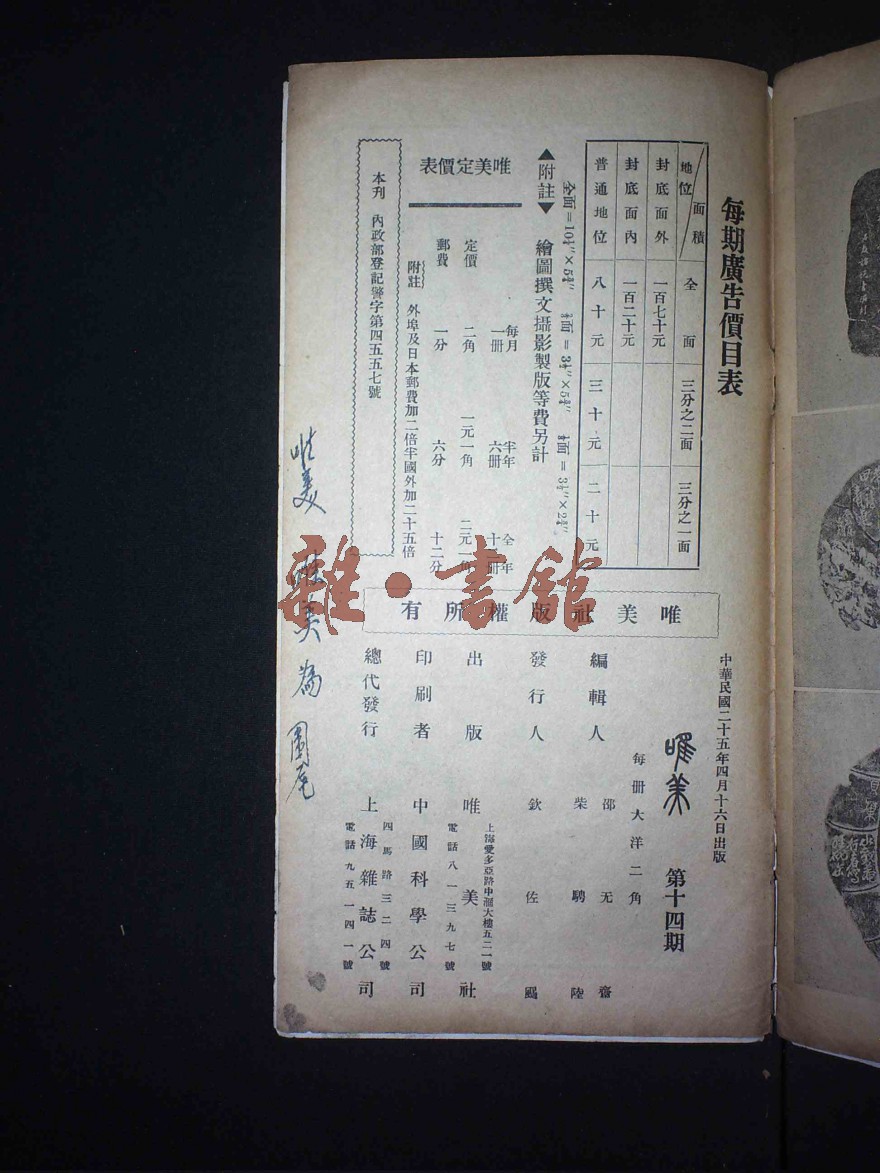 每期廣告價目表
地位 面積 全面 三分之二面 三分之一面
封底面外 一百七十元
封底面內 一百二十元
普通地位 八十元 三十元 二十元
▲附註▼ 繪圖撰文攝影製版等費另計
唯美定價表
每月一冊 半年六冊 全年十二冊
定價 二角 一元一角
郵費 一分 六分 十二分
附註 外埠及日本郵費加二倍半國外加二十五倍
本刊 內政部登記警字第四五五七號
唯美社版權所有
中華民國二十五年四月十六日出版
唯美 第十四期
每冊大洋二角
編輯人 邵无齋
柴騁陸
發行人 欽佐
出版 唯美社
上海愛多亞路中滙大樓五二一號
電話八一三九七號
印刷者 中國科學公司
總代發行 上海雜誌公司
四馬路三二四號
電話九五一四一號
唯美
雜·書館